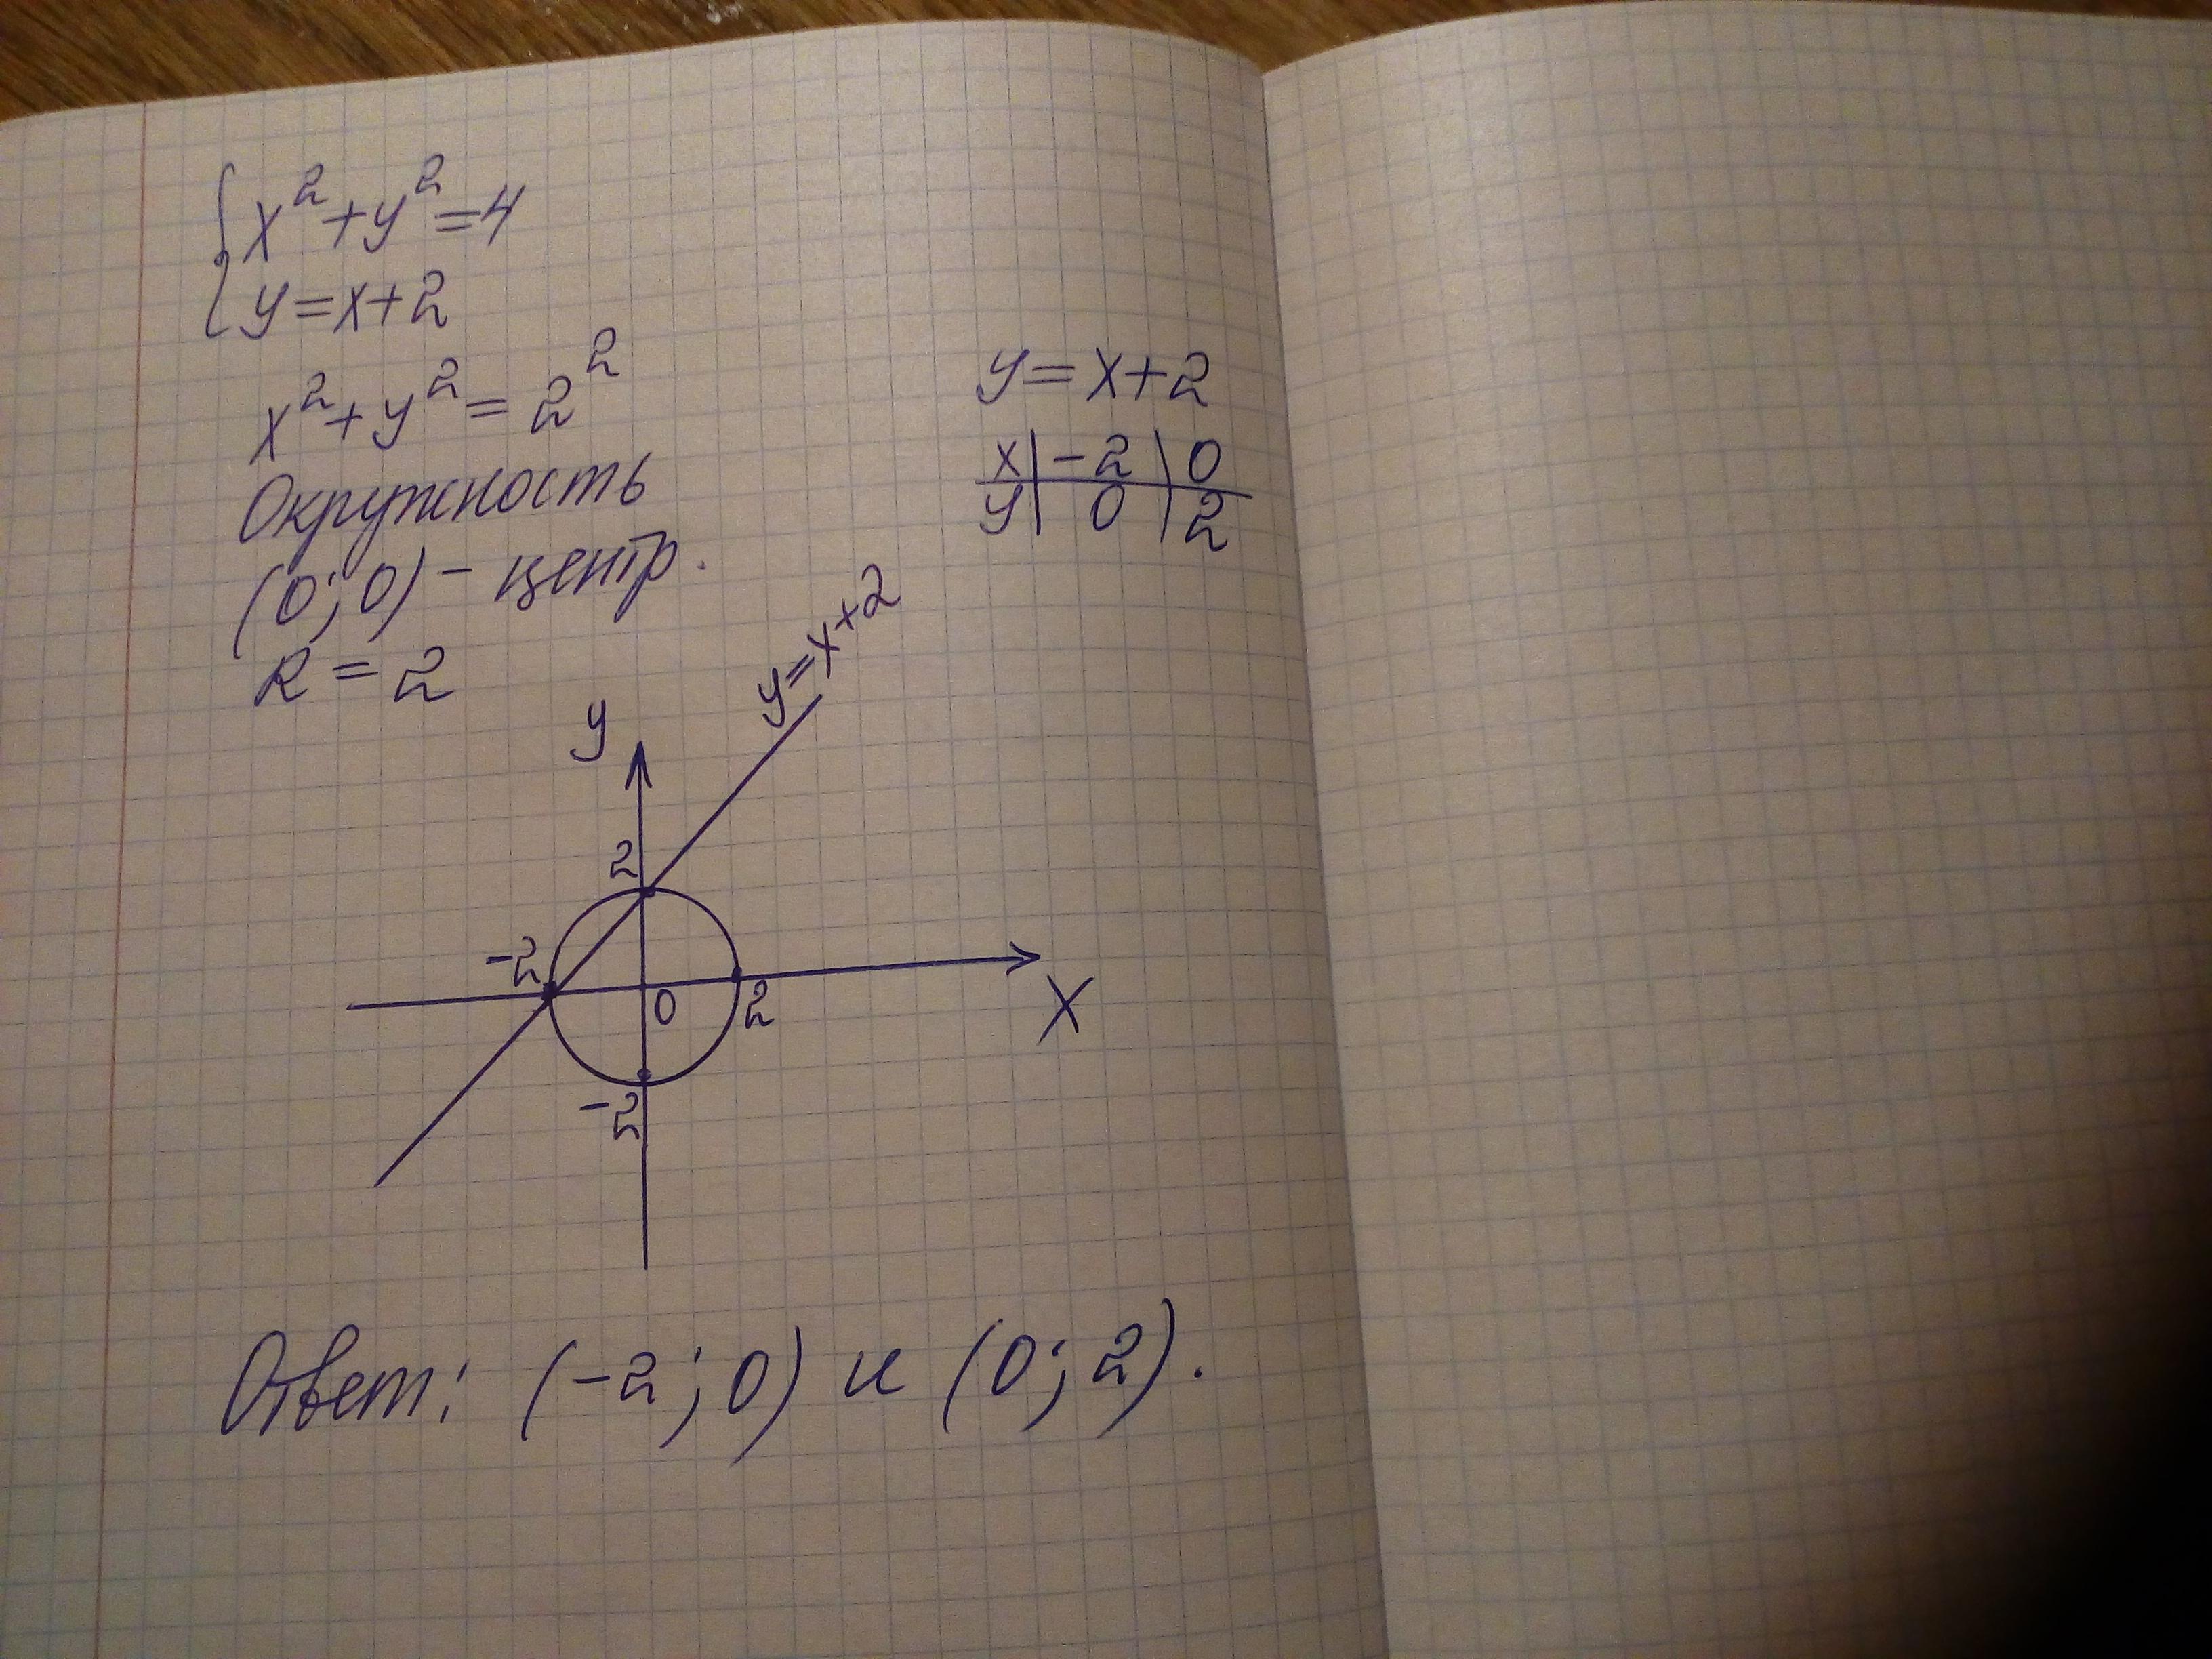 {x²+y²=4
{y=x+2
x²+y²=2²
Окружность
(0;0) - центр.
R=2
y=x+2
x | -2 | 0
y | 0 | 2
y=x+2
y
2
-2
0
2
X
-2
Ответ: (-2;0) и (0;2).